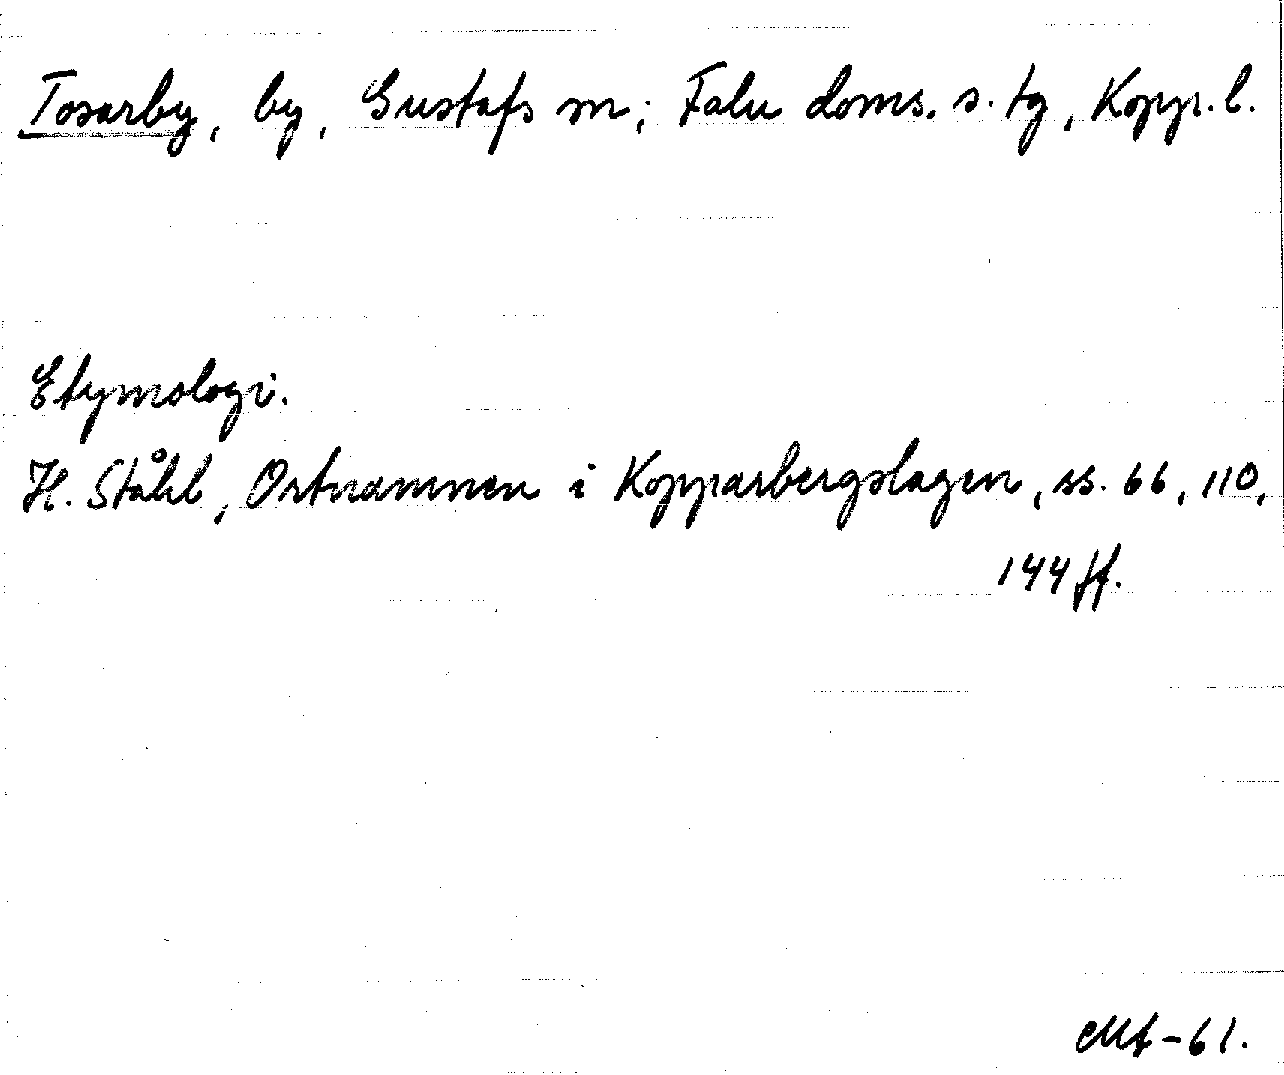 Tosarby, by, Gustafs sn; Falu doms. s. tg, Kopp. l.
Etymologi.
H. Ståhl, Ortnamnen i Kopparbergslagen, ss. 66, 110,
144 ff.
-61.